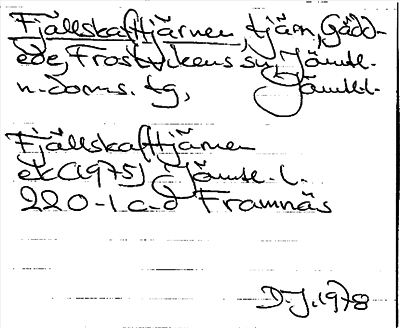 Fjällskafttjärnen, tjärn, Gädd-
ede, Frostvikens sn, Jämtl.
n. doms. tg, Jämtl.l.
Fjällskafttjärnen
ek(1975) Jämtl. l.
220-1 c-d Framnäs
D.J. 1978